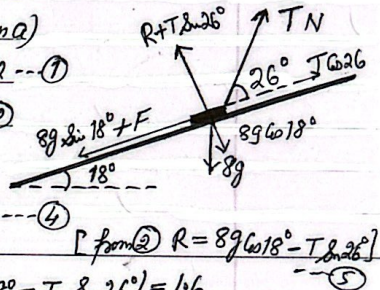 ma)
R+TSin26°
TN
--- ①
26°
TCos26
8g Sin 18°+F
8gCos18°
18°
8g
--- ④
[from ② R = 8gCos18° - TSin26°]
--- ⑤
- T Sin 26°) =